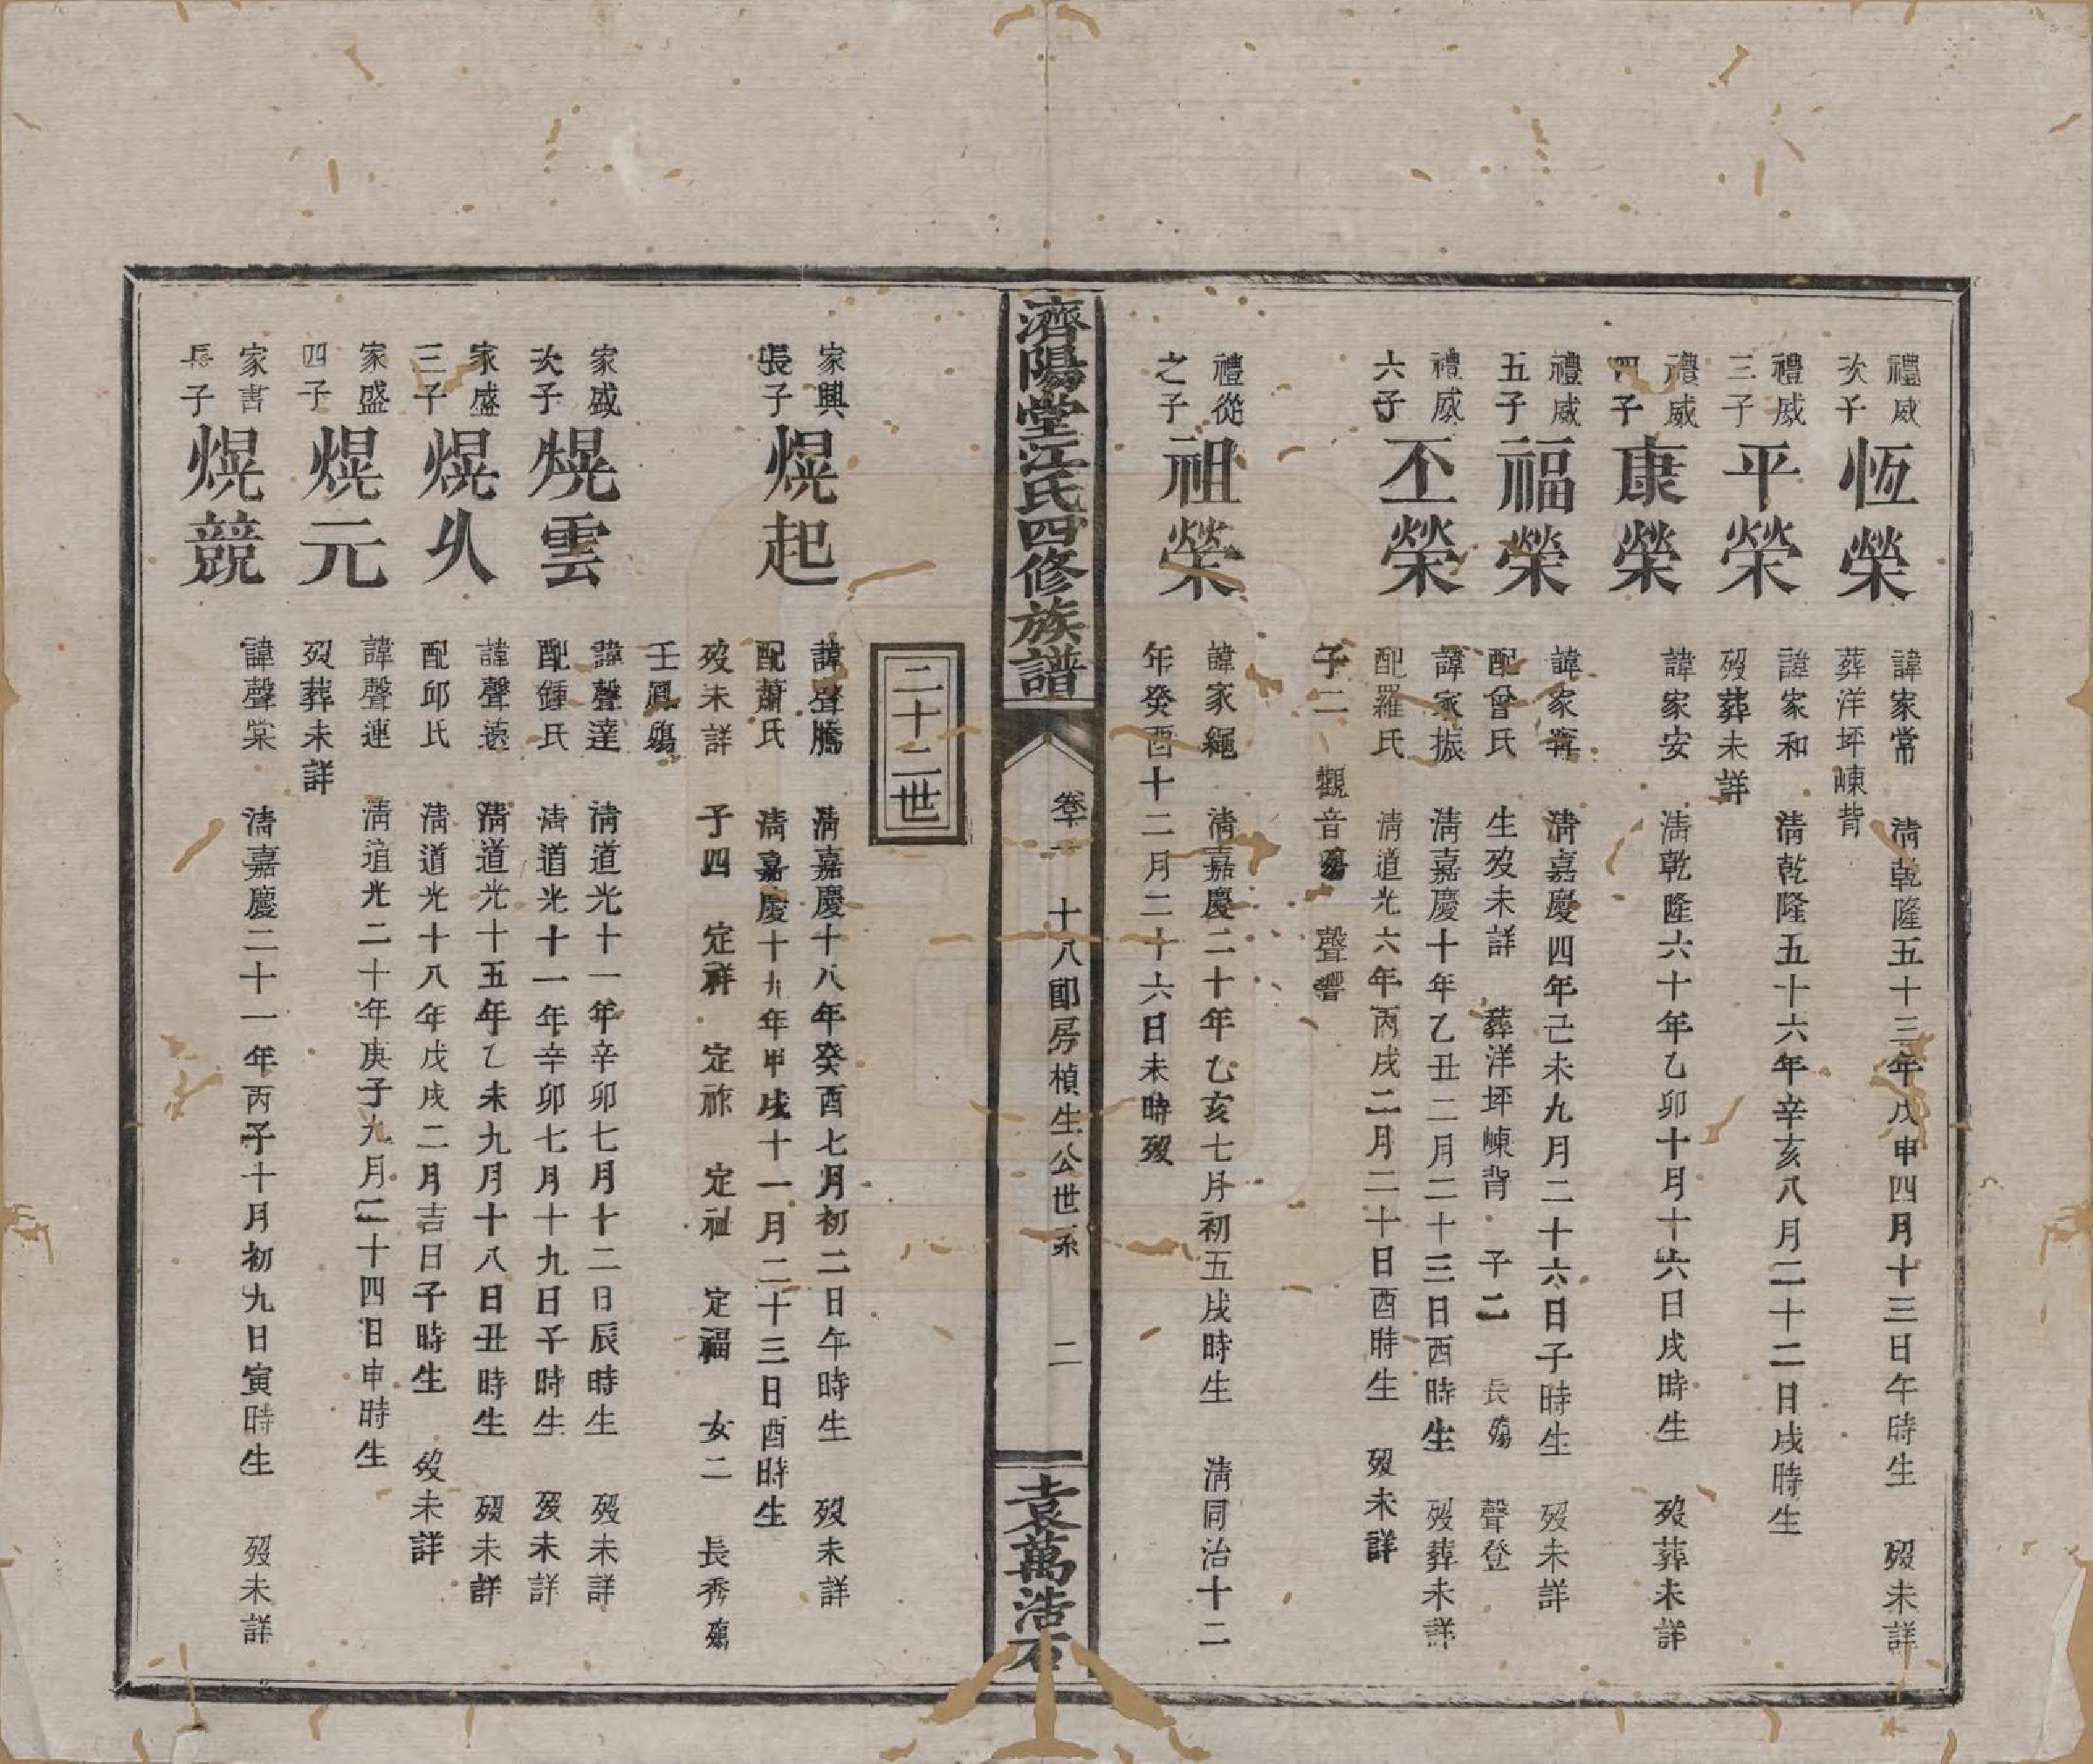 禮威
次子
恆榮
諱家常 清乾隆五十三年戊申四月十三日午時生 歿未詳
葬洋坪崠背
禮威
三子
平榮
諱家和 清乾隆五十六年辛亥八月二十二日戌時生
歿葬未詳
禮威
四子
康榮
諱家安 清乾隆六十年乙卯十月十六日戌時生 歿葬未詳
禮威
五子
福榮
諱家寗 清嘉慶四年己未九月二十六日子時生 歿未詳
配曾氏 生歿未詳 葬洋坪崠背 子二 長殤 聲登
禮威
六子
丕榮
諱家振 清嘉慶十年乙丑二月二十三日酉時生 歿葬未詳
配羅氏 清道光六年丙戌二月二十日酉時生 歿未詳
子二 觀音殤 聲響
禮從
之子
祖榮
諱家繩 清嘉慶二十年乙亥七月初五戌時生 清同治十二
年癸酉十二月二十六日未時歿
濟陽堂江氏四修族譜
卷十一 十八郎房楨生公世系 二
袁萬浩石
二十二世
家興
長子
熀起
諱聲騰 清嘉慶十八年癸酉七月初二日午時生 歿未詳
配蕭氏 清嘉慶十九年甲戌十一月二十三日酉時生
歿未詳 子四 定祥 定祚 定祉 定福 女二 長秀殤
壬鳳殤
家盛
次子
熀雲
諱聲達 清道光十一年辛卯七月十二日辰時生 歿未詳
配鍾氏 清道光十一年辛卯七月十九日子時生 歿未詳
家盛
三子
熀久
諱聲遠 清道光十五年乙未九月十八日丑時生 歿未詳
配邱氏 清道光十八年戊戌二月吉日子時生 歿未詳
家盛
四子
熀元
諱聲連 清道光二十年庚子九月二十四日申時生
歿葬未詳
家書
長子
熀競
諱聲棠 清嘉慶二十一年丙子十月初九日寅時生 歿未詳